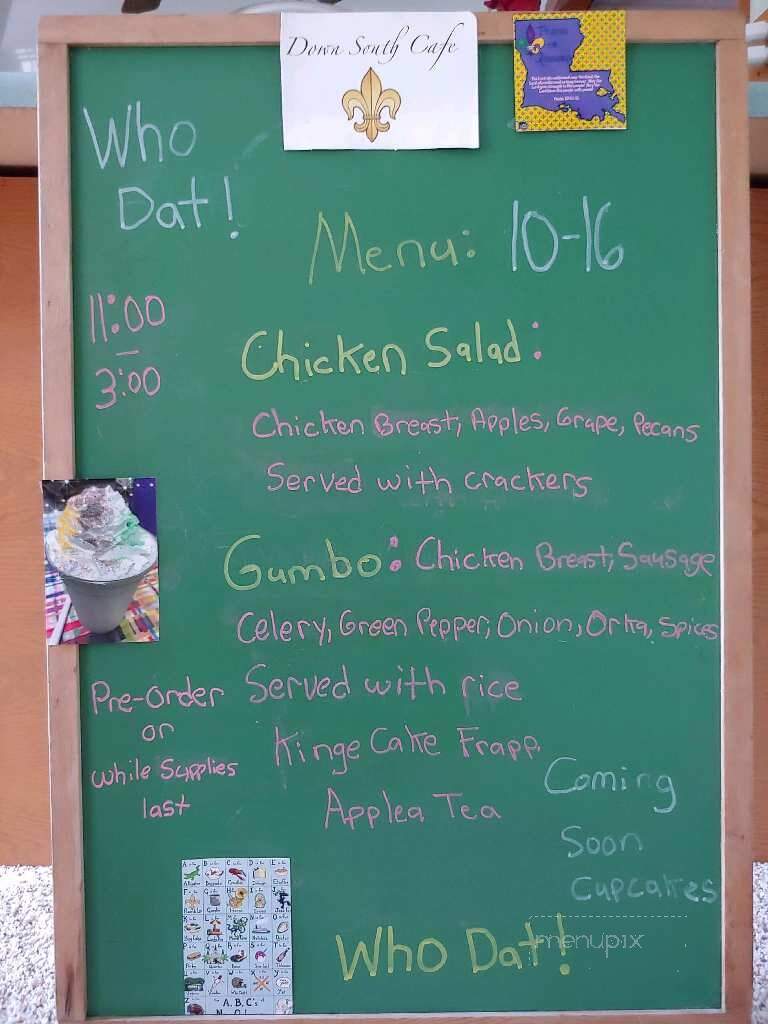 Down South Cafe
Who
Dat!
Menu: 10-16
11:00
-
3:00
Chicken Salad:
Chicken Breast, Apples, Grape, Pecans
Served with crackers
Gumbo: Chicken Breast, Sausage
Celery, Green Pepper, Onion, Orka, Spices
Served with rice
Pre-Order
or
while Supplies
last
Kinge Cake Frapp.
Applea Tea
Coming
Soon
Cupcakes
Who Dat!
menupix
A, B, C's of